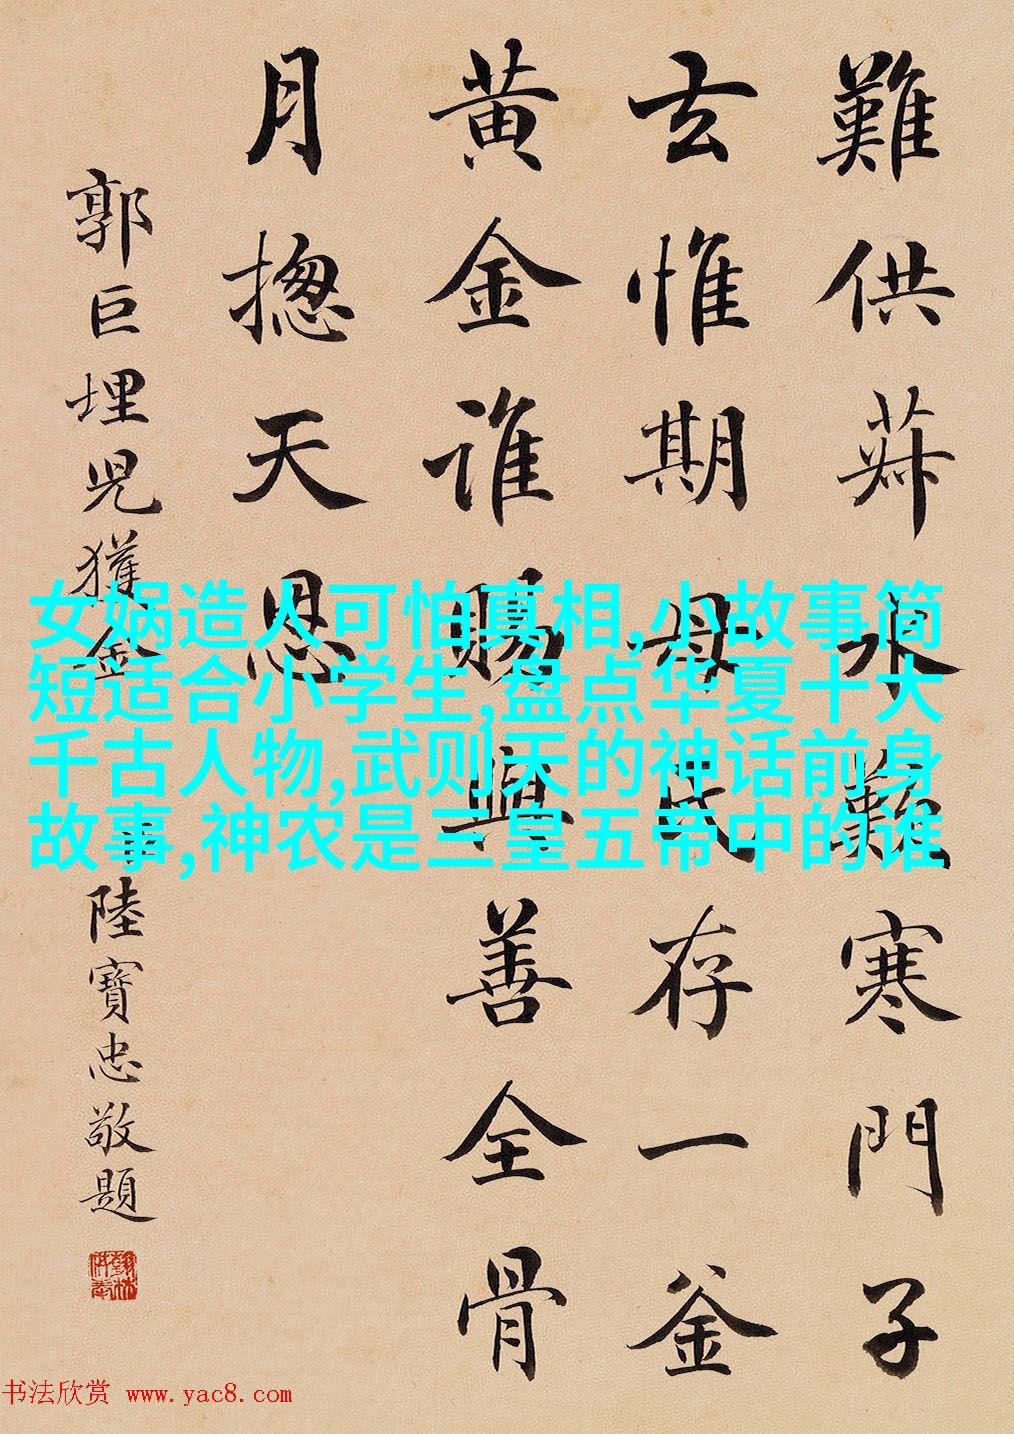 難供菽水寒門子
玄惟期母氏存一釜
黄金誰賜與善全骨
月揔天恩
郭巨埋児獲金
陸寶忠敬題
女娲造人可怕真相,小故事简
短适合小学生,盘点华夏十大
千古人物,武则天的神话前身
故事,神农是三皇五帝中的谁
书法欣赏 www.yac8.com